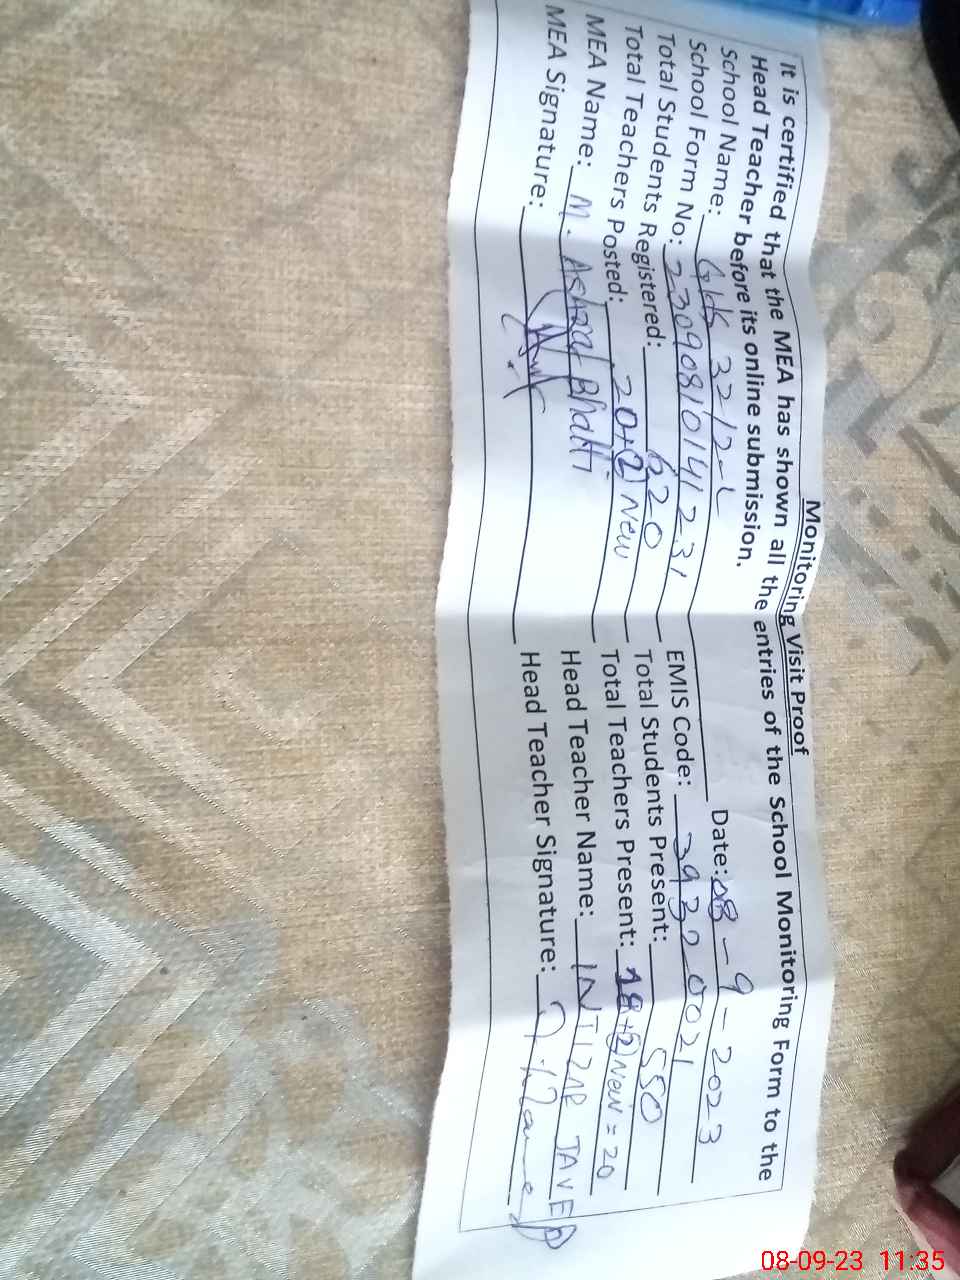 Monitoring Visit Proof
It is certified that the MEA has shown all the entries of the School Monitoring Form to the
Head Teacher before its online submission.
School Name: GHS 32/2-L Date: 08-9-2023
School Form No: 2309081014123 1 EMIS Code: 39320021
Total Students Registered: 620 Total Students Present: 550
Total Teachers Posted: 20+2 New Total Teachers Present: 18+2 New = 20
MEA Name: M. Ashraf Bhatti Head Teacher Name: INTIZAR JAVED
MEA Signature: Head Teacher Signature:
08-09-23 11:35